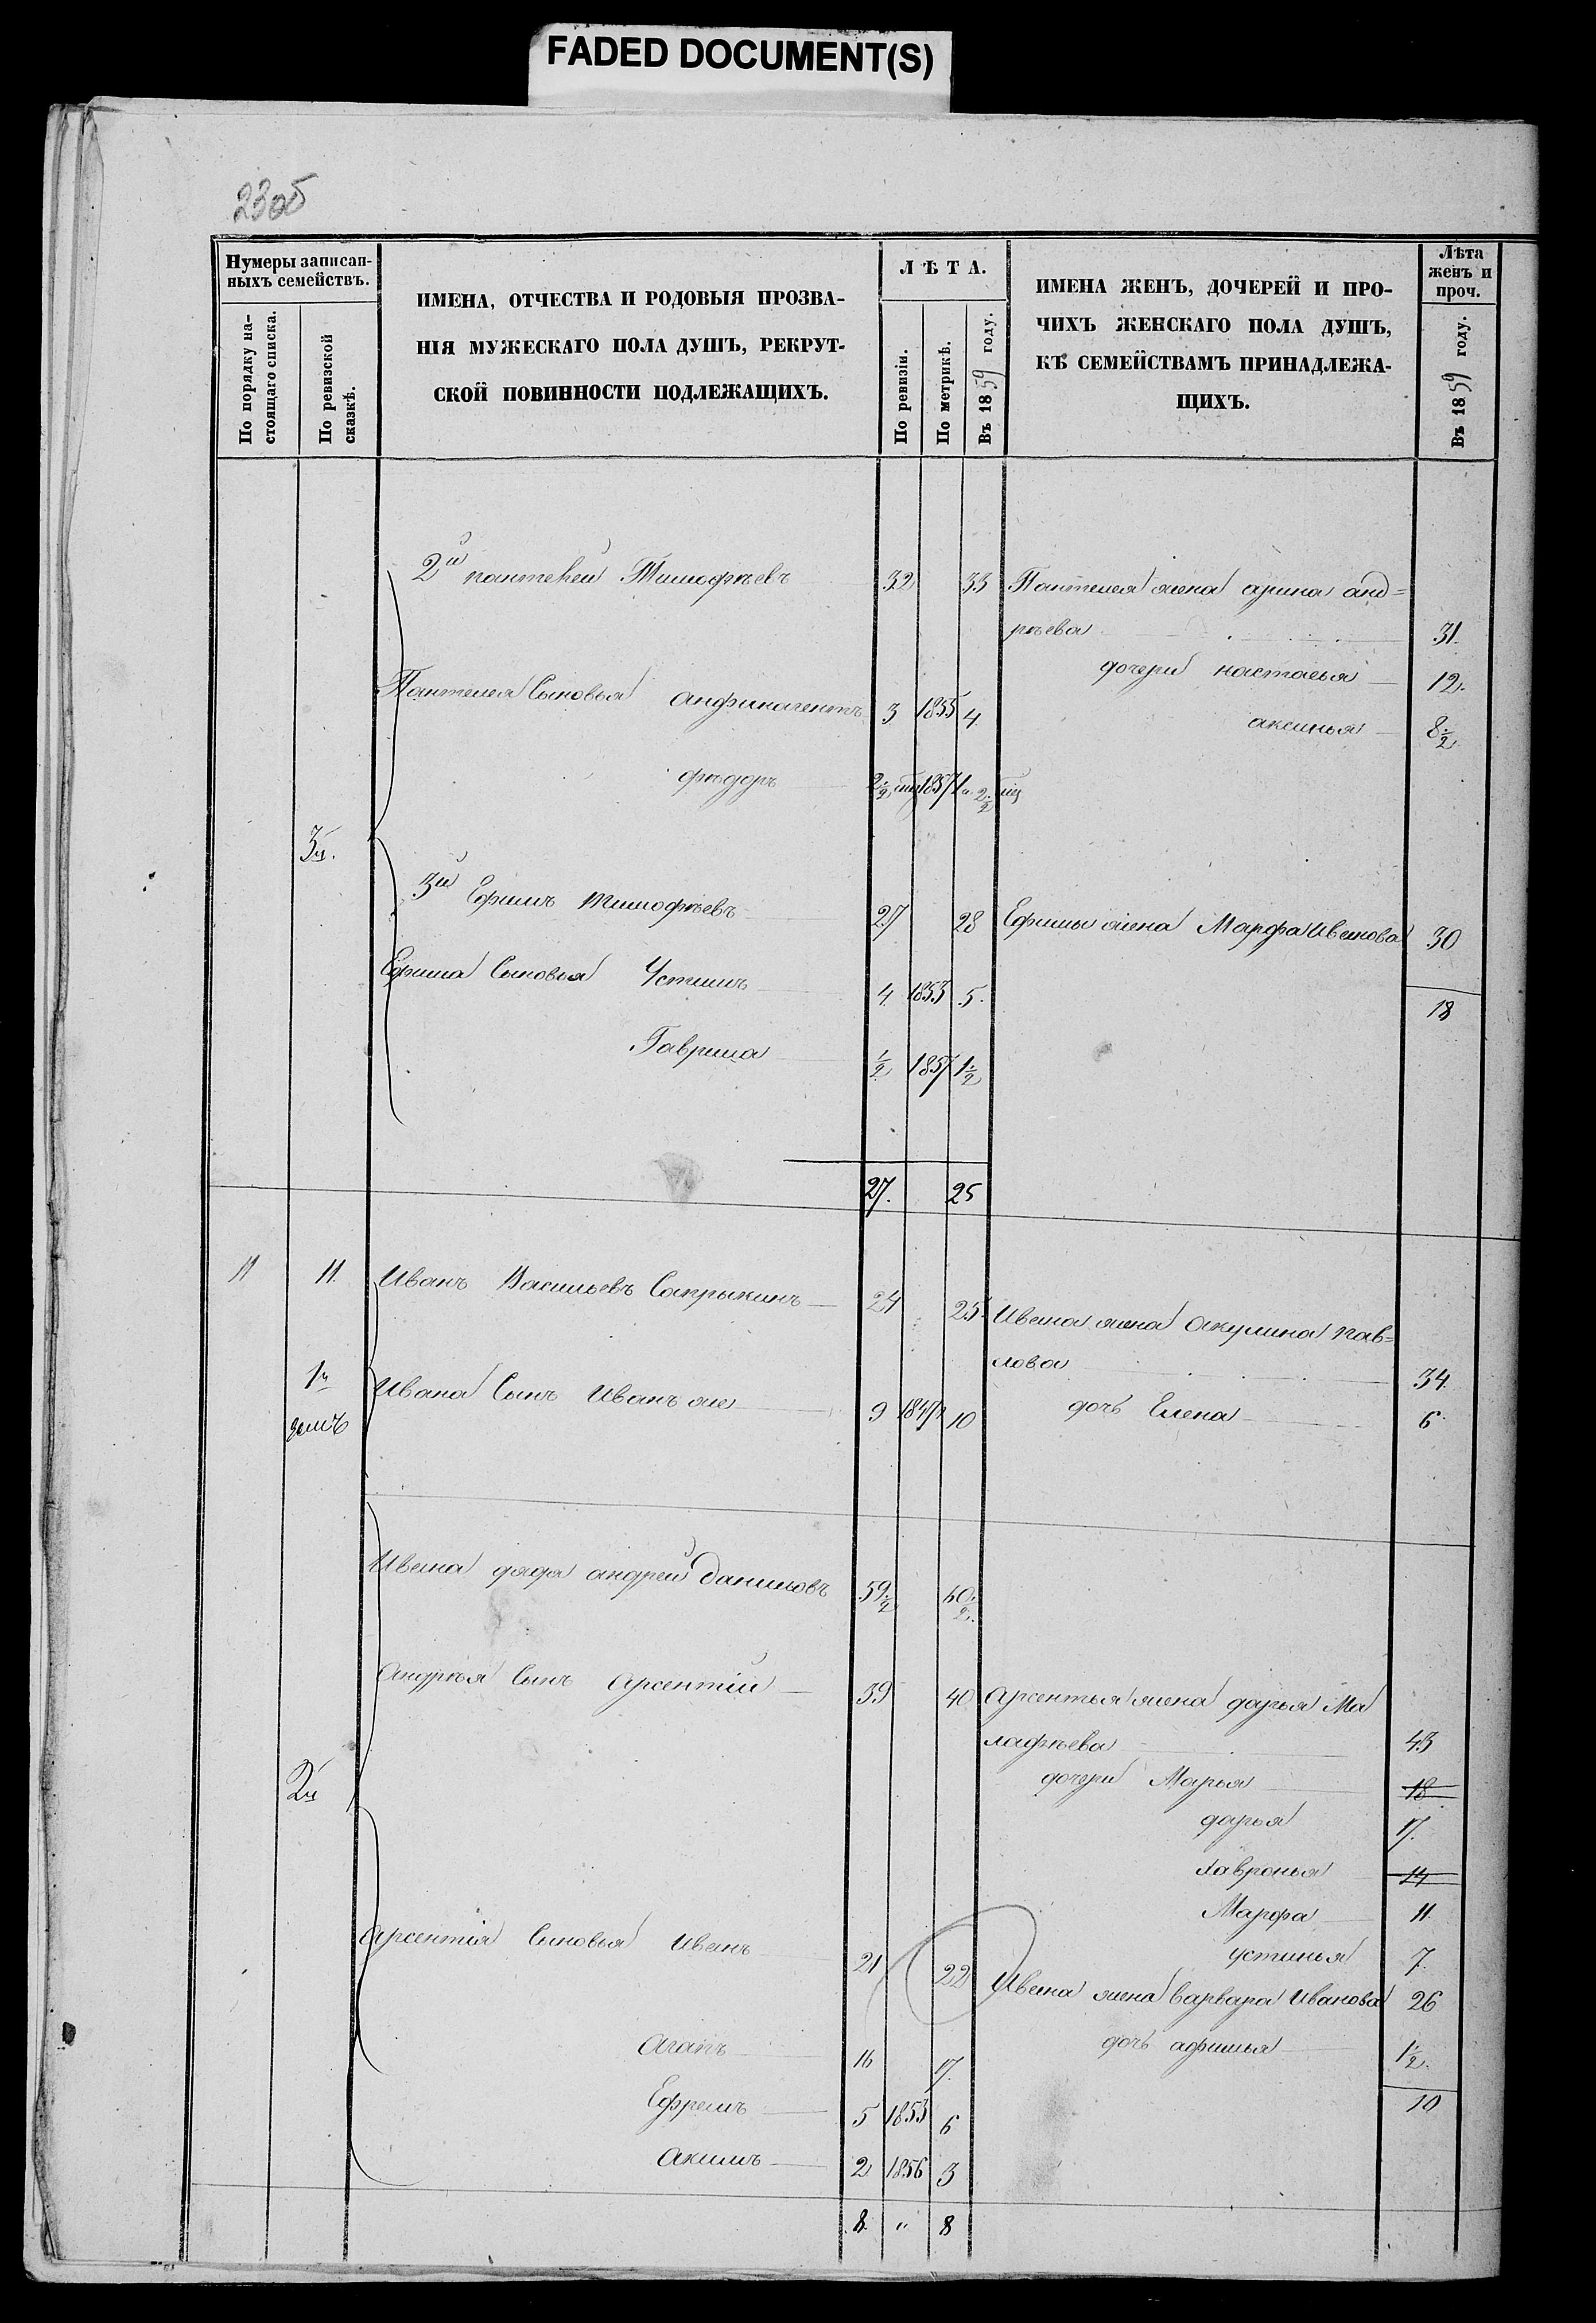 FADED DOCUMENT(S)
230б
Нумеры записан-
ныхъ семействъ.
По порядку на-
стоящаго списка.
По ревизской
сказкѣ.
ИМЕНА, ОТЧЕСТВА И РОДОВЫЯ ПРОЗВА-
НІЯ МУЖЕСКАГО ПОЛА ДУШЪ, РЕКРУТ-
СКОЙ ПОВИННОСТИ ПОДЛЕЖАЩИХЪ.
ЛѢТА.
По ревизіи.
По метрикѣ.
Въ 1859 году.
ИМЕНА ЖЕНЪ, ДОЧЕРЕЙ И ПРО-
ЧИХЪ ЖЕНСКАГО ПОЛА ДУШЪ,
КЪ СЕМЕЙСТВАМЪ ПРИНАДЛЕЖА-
ЩИХЪ.
Лѣта
женъ и
проч.
Въ 1859 году.
2й пантелей Тимофѣевъ 32 33 Пантелея жена арина анд=
рѣева 31.
дочери настасья 12.
Пантелея Сыновья 3 1855 4
аксинья 8 1/2
фѣдоръ 1857
3й.
3й Ефимъ тимофѣевъ 27 28 Ефимы жена Марфа Иванова 30
Ефима Сыновья Устинъ 4 1853 5.
18
Гаврила 1/2 1857 1 1/2
27. 25
11 11. Иванъ Васильевъ Сапрыкинъ 24 25. Ивана жена акулина пав=
лова 34.
1й Ивана Сынъ Иванъ же 9 1847 10
домъ
дочь Елена 6.
Ивана дядя андрей даниловъ 59 1/2 60 1/2
андрѣя Сынъ арсентій 39 40 арсентья жена дарья Ма
лафѣева 43
2й
дочери Марья 18
дарья 17.
хавронья 14
Марфа 11
арсентія Сыновья Иванъ 21 22
устинья 7.
Ивана жена варвара Иванова 26
Агапъ 16 17.
дочь афимья 1 1/2.
Ефремъ 5 1853 6
10
акимъ 2 1856 3
8. " 8